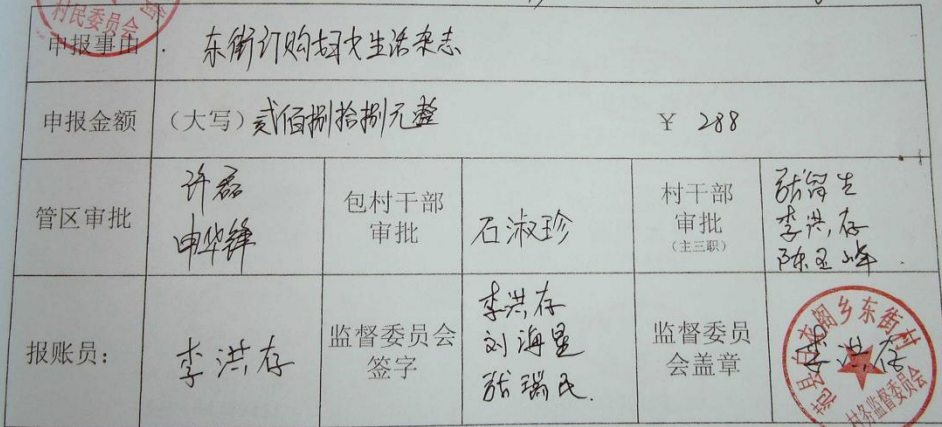 村民委员会
申报事由
东街订购妇女生活杂志
申报金额
(大写) 贰佰捌拾捌元整
¥ 288
管区审批
许磊
申华锋
包村干部
审批
石淑珍
村干部
审批
(主三职)
张留生
李洪存
陈玉峰
报账员:
李洪存
监督委员会
签字
李洪存
刘海星
张瑞民
监督委员
会盖章
李洪存
范县白衣阁乡东街村
村务监督委员会